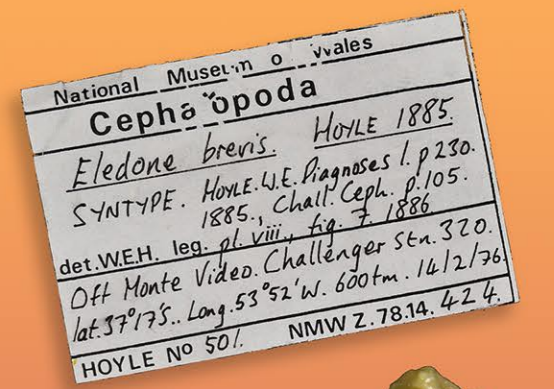 National Museum o Wales
Cephalopoda
Eledone brevis. HOYLE 1885.
SYNTYPE. HOYLE.W.E. Diagnoses I. p230.
1885., Chall. Ceph. p.105.
det.W.E.H. leg. pl. viii, fig. 7. 1886
Off Monte Video. Challenger Stn. 320.
lat. 37°17's.. Long. 53°52'W. 600fm. 14/2/76.
HOYLE Nº 501. NMW Z.78.14. 424.